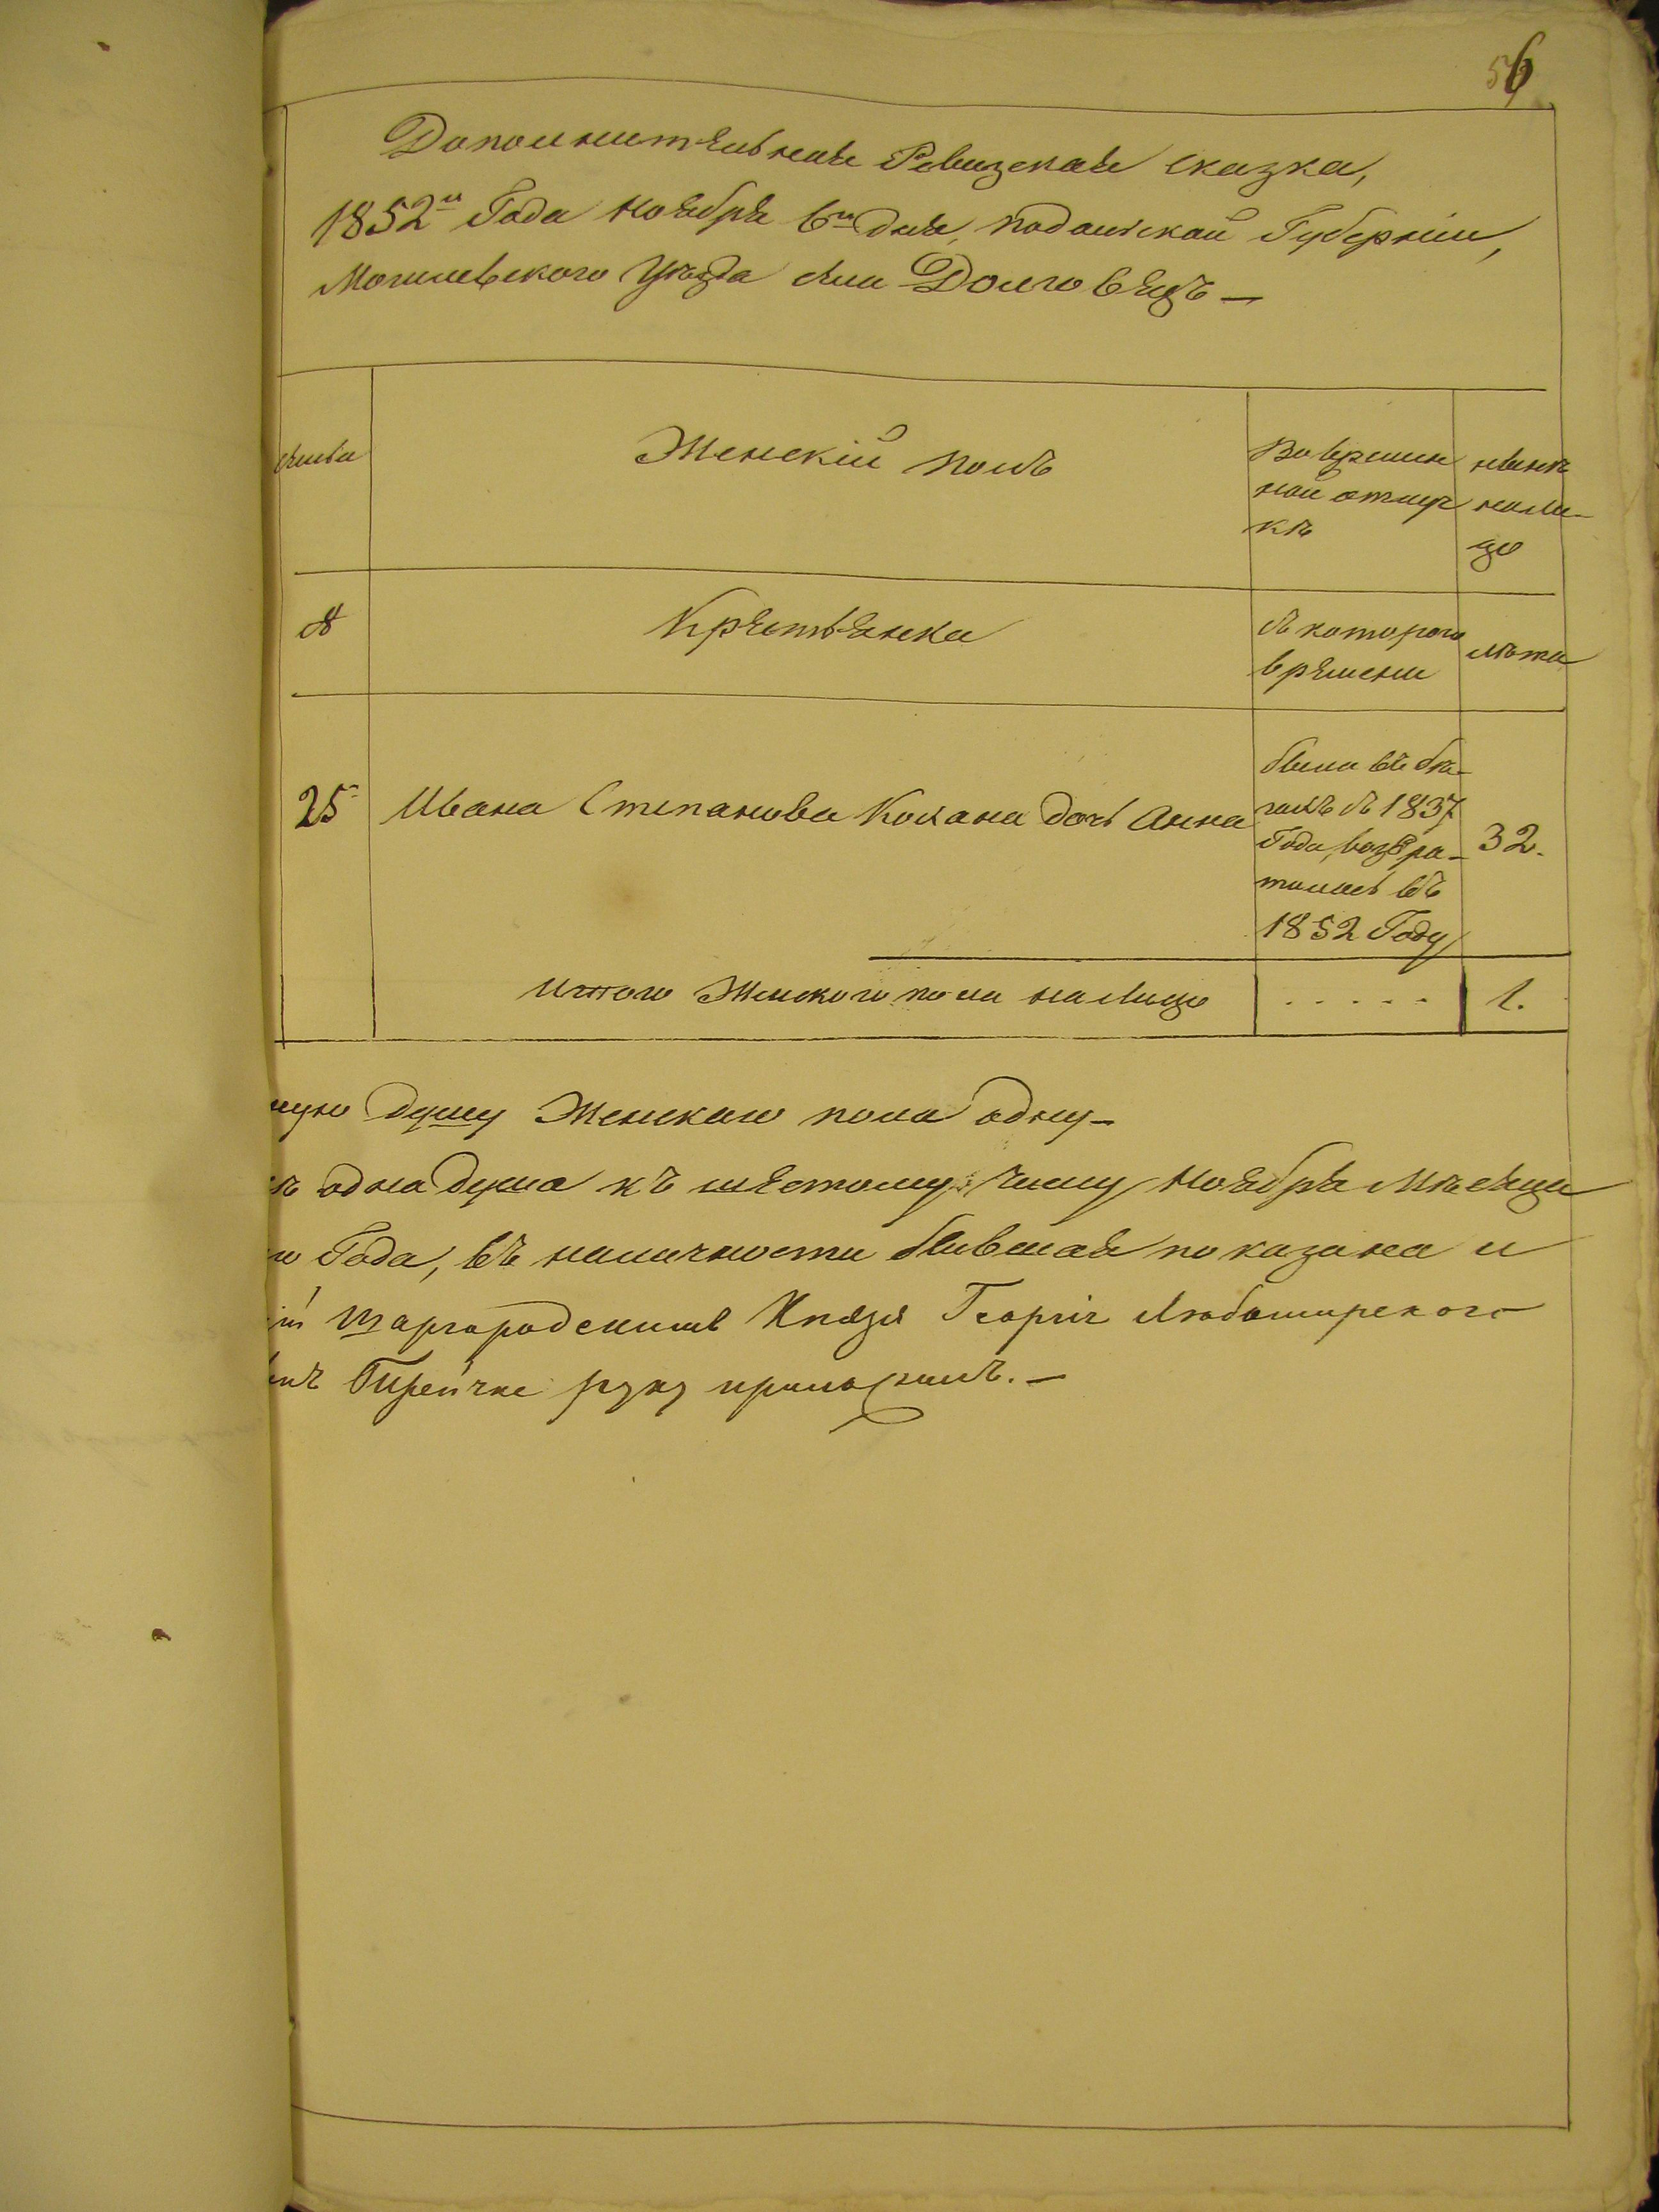 56
Дополнительная Ревизская сказка,
1852го Года Ноября 6го дня, подольской Губерніи,
Могилевского Уѣзда села Долговецъ —
Женскій полъ
Во времен
ной отлуч
кѣ
нынѣ
на ли-
цо
№
Крестьянка
съ которого
времени
лѣта
25
Ивана Степанова Кохана дочь Анна
была въ бѣ-
гахъ съ 1837
Года, возвра-
тилась въ
1852 Году
32.
Итого Женского пола на лицо
. . . . .
1.
душу Женскаго пола одну —
одна душа къ шестому числу Ноября Мѣсяца
Года, въ наличности бывшая показана и
Шаргородскимъ Князя Георгія Любомирского
руку приложилъ. —